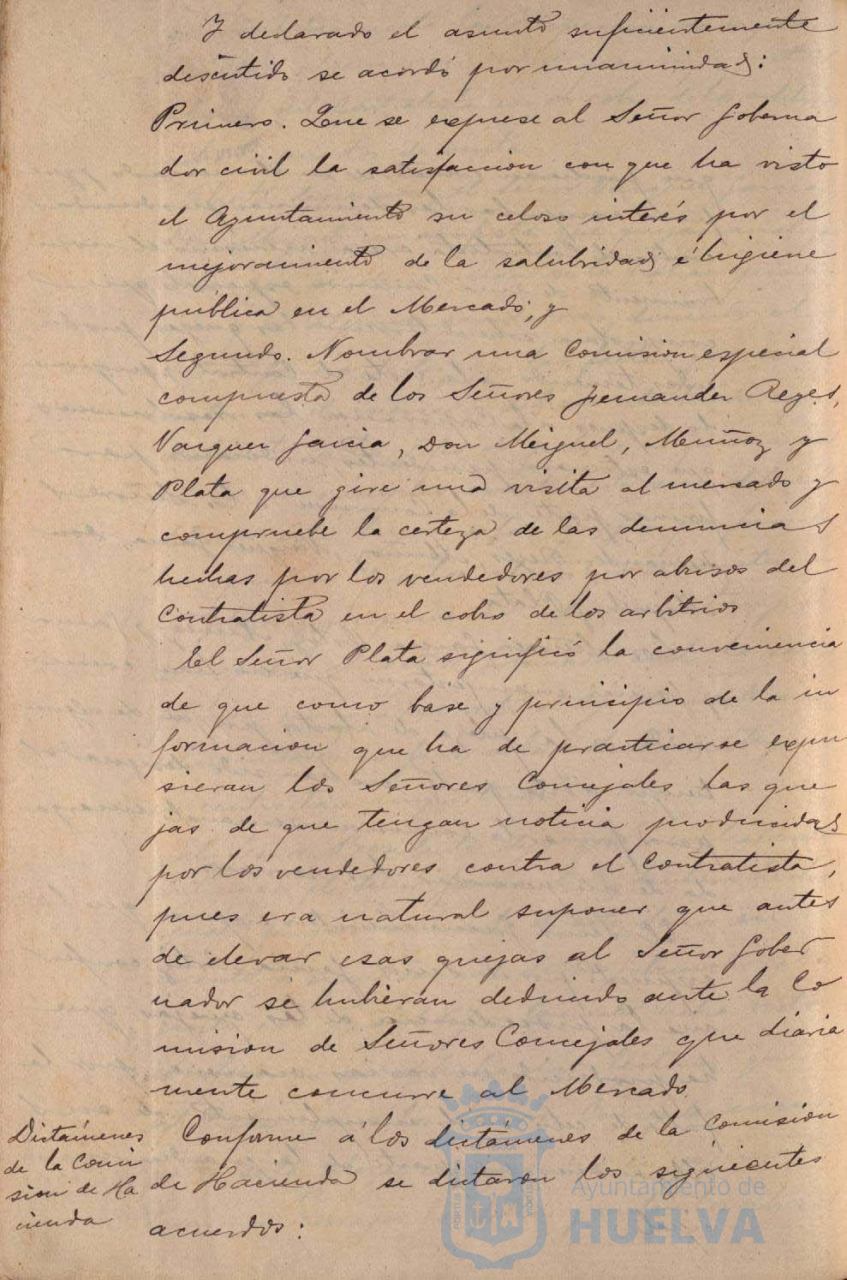 Y declarado el asunto suficientemente
discutido se acordó por unanimidad:
Primero. Que se exprese al Señor Goberna
dor civil la satisfaccion con que ha visto
el Ayuntamiento su celoso interés por el
mejoramiento de la salubridad é higiene
pública en el Mercado; y
Segundo. Nombrar una Comision especial
compuesta de los Señores Fernandez Reyes,
Vazquez Garcia, Don Miguel, Muñoz y
Plata que gire una visita al mercado y
compruebe la certeza de las denuncias
hechas por los vendedores por abusos del
Contratista en el cobro de los arbitrios
El Señor Plata significó la conveniencia
de que como base y principio de la in
formacion que ha de practicarse expu
sieran los Señores Concejales las que
jas de que tengan noticia producidas
por los vendedores contra el Contratista,
pues era natural suponer que antes
de elevar esas quejas al Señor Gober
nador se hubieran deducido ante la Co
mision de Señores Concejales que diaria
mente concurre al Mercado
Dictámenes
de la Comi
sion de Ha
cienda
Conforme á los dictámenes de la Comision
de Hacienda se dictaron los siguientes
acuerdos:
Ayuntamiento de
HUELVA